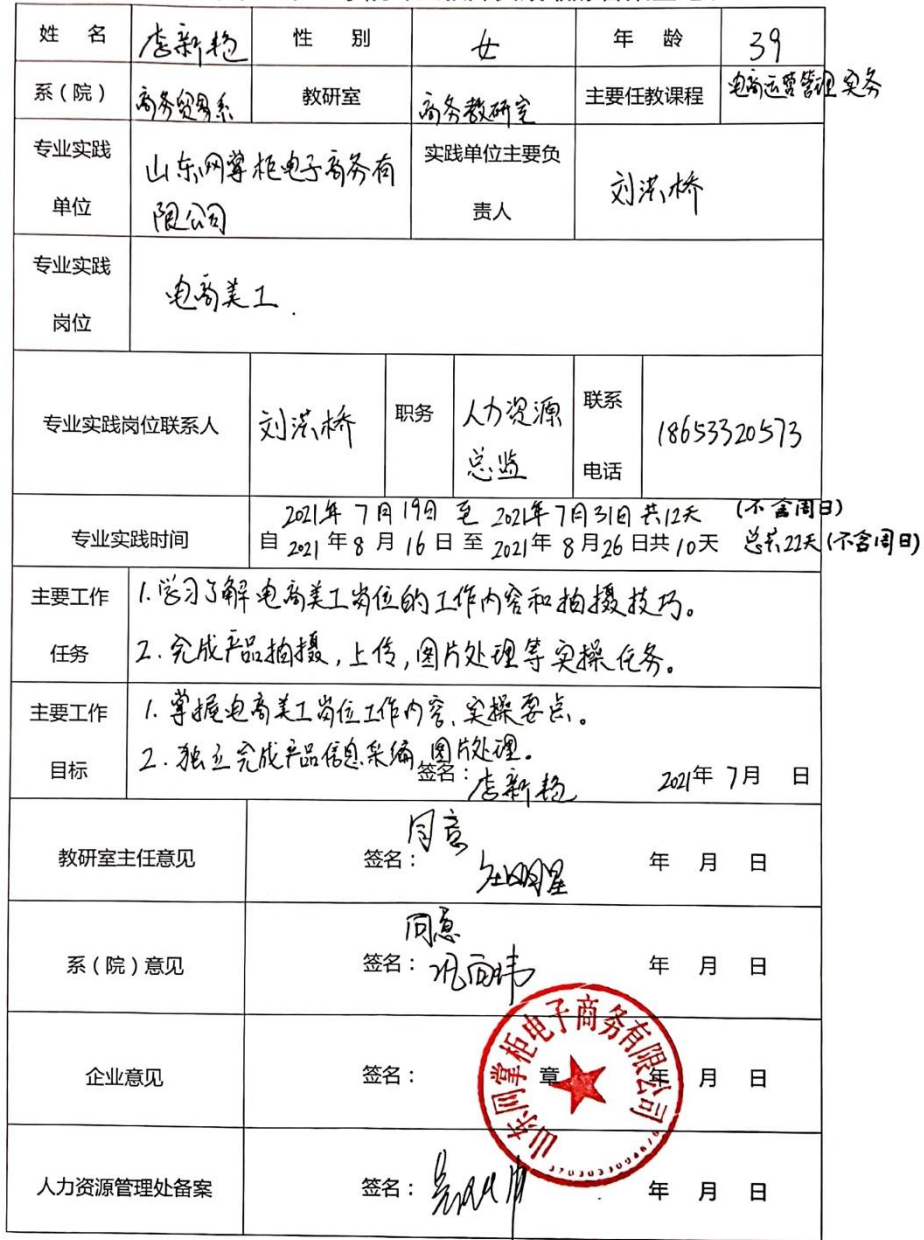 姓 名 李新艳 性 别 女 年 龄 39
系(院) 商务贸易系 教研室 商务教研室 主要任教课程 电商运营管理实务
专业实践单位 山东网掌柜电子商务有限公司 实践单位主要负责人 刘洪桥
专业实践岗位 电商美工.
专业实践岗位联系人 刘洪桥 职务 人力资源总监 联系电话 18653320573
专业实践时间
2021年7月19日 至 2021年7月31日共12天 (不含周日)
自 2021 年 8 月 16 日 至 2021年 8月26 日共 10天 总共22天(不含周日)
主要工作任务
1.学习了解电商美工岗位的工作内容和拍摄技巧。
2.完成产品拍摄,上传,图片处理等实操任务。
主要工作目标
1.掌握电商美工岗位工作内容、实操要点。
2.独立完成产品信息采编,图片处理。
签名:李新艳 2021年 7月 日
教研室主任意见 同意
签名: 年 月 日
系(院)意见 同意
签名: 年 月 日
企业意见 签名: 章 年 月 日
山东网掌柜电子商务有限公司
人力资源管理处备案 签名: 年 月 日